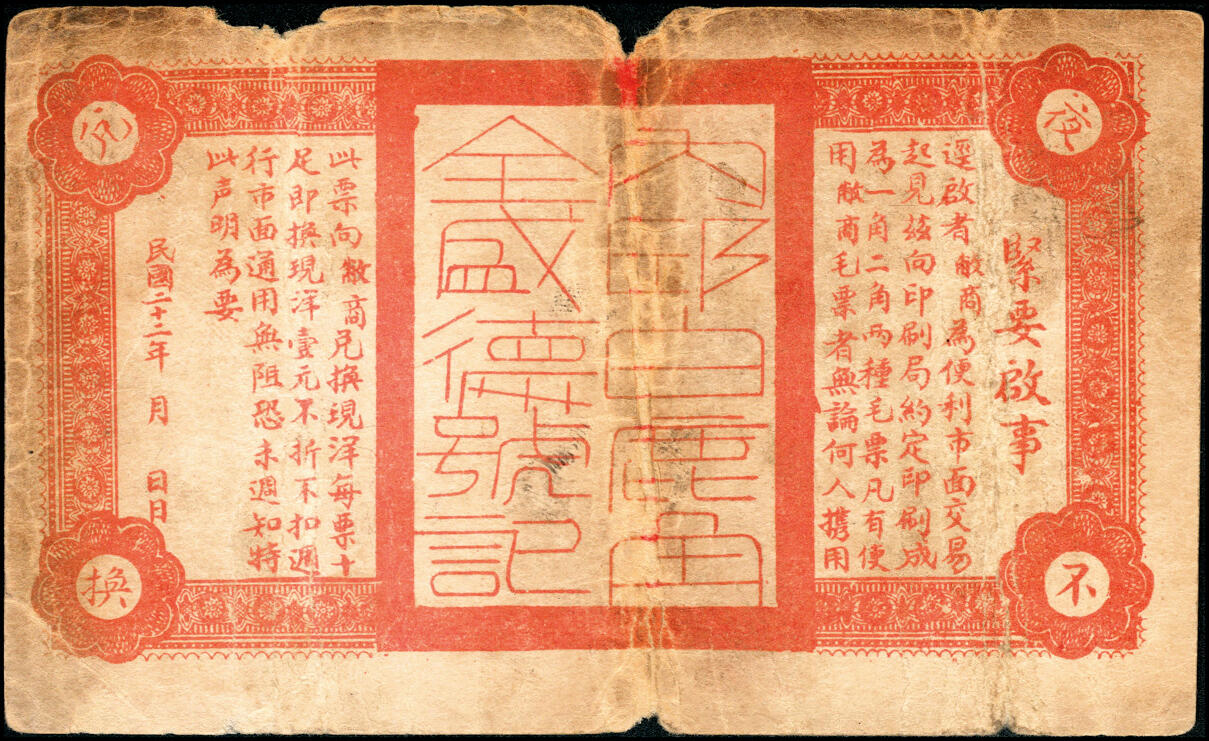 夜不兌換
緊要啟事
逕啟者敝商為便利市面交易
起見茲向印刷局約定印刷成
為一角二角兩種毛票凡有使
用敝商毛票者無論何人攜用
內邱白鹿角
全盛德號記
此票向敝商兌換現洋每票十
足即換現洋壹元不折不扣週
行市面通用無阻恐未週知特
此声明為要
民國二十二年 月 日日